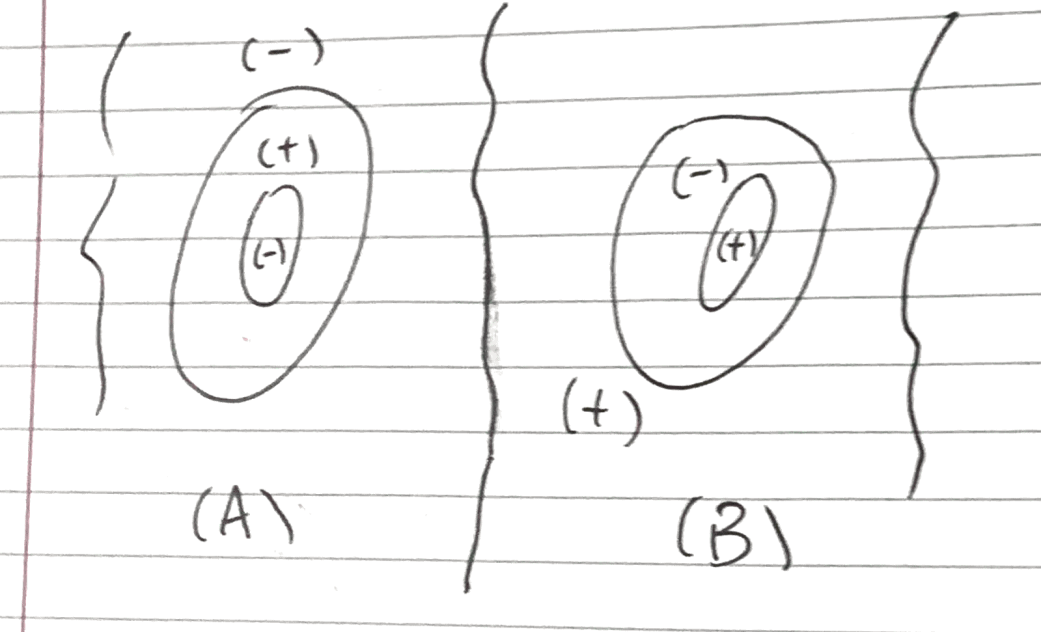 (-)
(+)
(-)
(-)
(+)
(+)
(A)
(B)